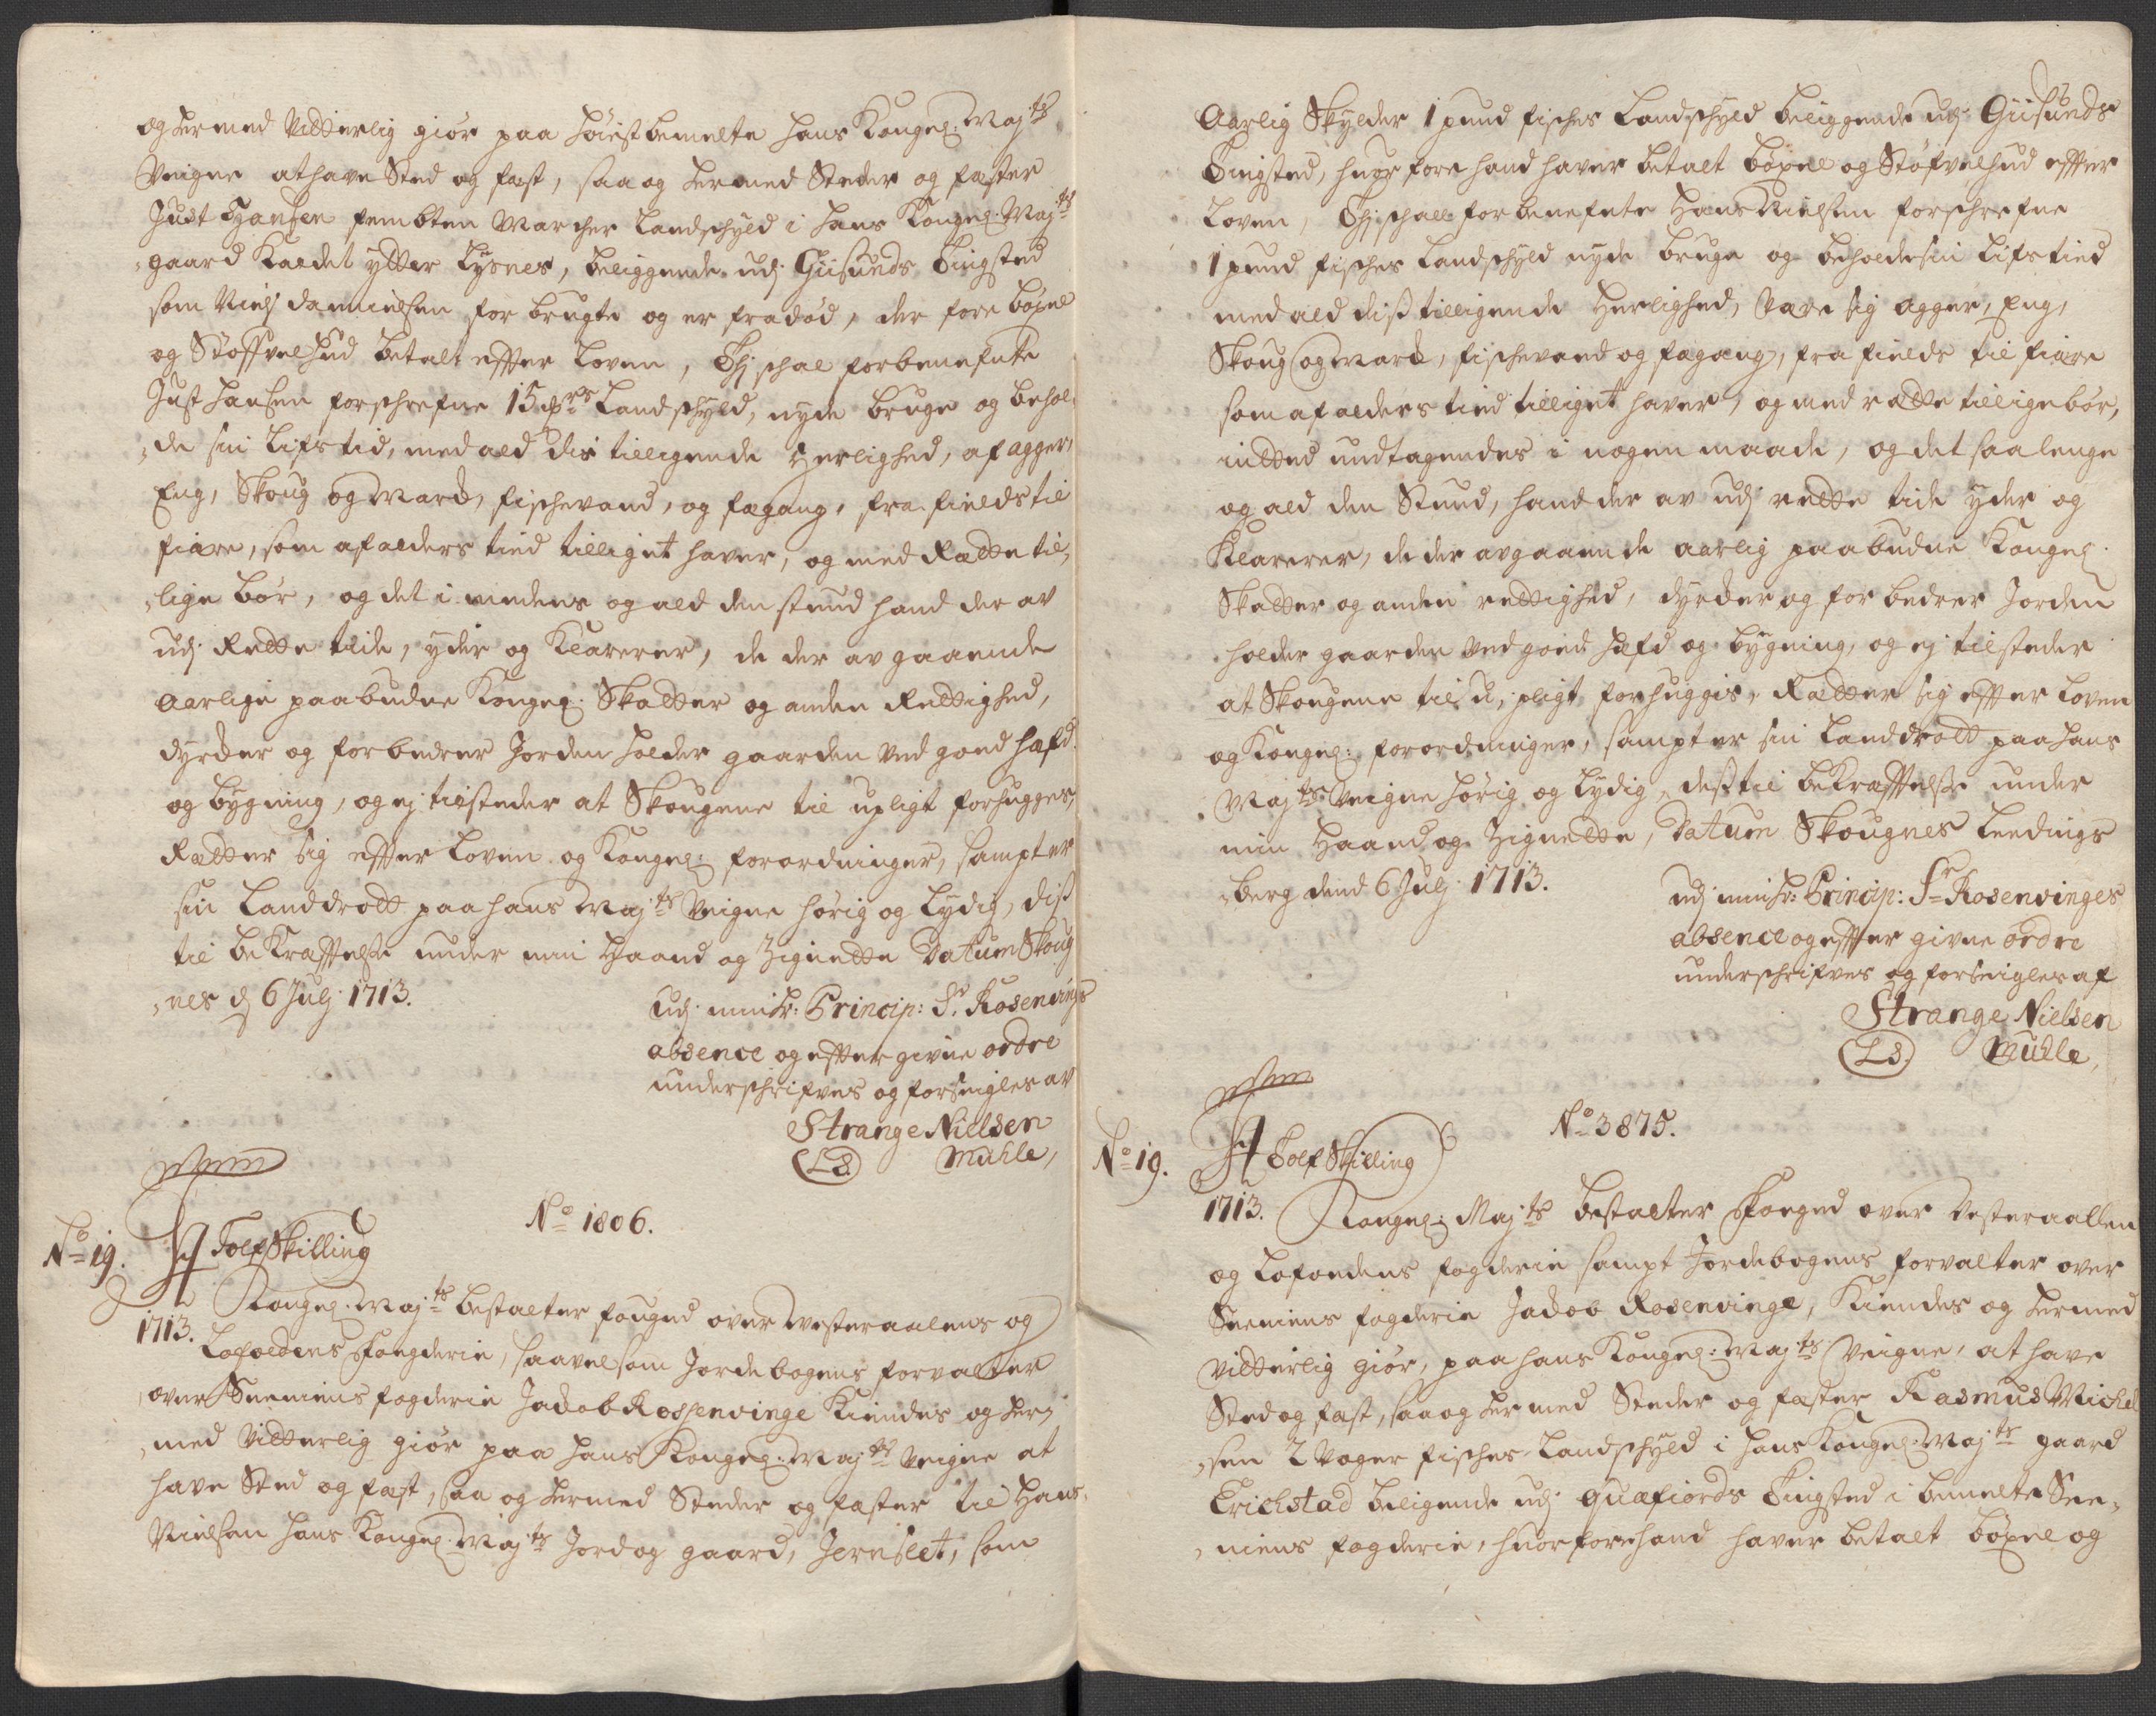 og hermed Vitterlig giør paa høistbemelte hans Kongel: Maj:ts
Veigne at have Sted og fæst, saa og hermed Steder og fæster
Just Hansen fembten Marcher Landschyld i hans Kongel: Maj:ts
gaard Kaldet ytter Lysnes, beliggende udj Giisunds Tingsted
som Niels Danielsen for brugte og er fradød, der fore böxel
og Støffvelhud betalt effter Loven, Thj schal forbenefnte
Just Hansen forschrefne 15 Mrs Landschyld, nyde bruge og behol-
de sin Lifs tid, med ald dis tilligende Herlighed, af agger,
Eng, Skoug og Mark, fischevand, og fægang, fra fields til
fiære, som af alders tied tilliget haver, og med Rætte til-
lige bør, og det i mindens og ald den stund hand der av
udj Rætte tide, yder og Klarerer, de der avgaaende
Aarlige paabudne Kongel: Skatter og anden Rettighed,
dyrker og forbedrer Jorden holder gaarden ved goed hæfd
og bygning, og ej tilsteder at Skougene til upligt forhugges,
Rætter sig effter Loven og Kongel: forordninger, sampt er
sin Landdrott paa hans Maj:ts Veigne hørig og Lydig, diss
til bekræfftelse under min Haand og Zignette Datum Skoug
nes d 6 Julj 1713.
Udj min hr: Princip: Sr. Rosenvings
absence og effter givne ordre
underschrifves og forseigles av
Strange Nielsen
LS Muhle,
No 19. Tolf Skilling No 1806.
1713. Kongel: Maj:ts bestalter fouged over Westeraalens og
Lofodens Fogderie, saavel som Jordebogens forvalter
over Senniens fogderie Jacob Rossenvinge Kiendes og her-
med Vitterlig giør paa hans Kongel: Maj:ts Veigne at
have Sted og fæst, saa og hermed Steder og fæster til Hans
Nielsen hans Kongel: Maj:ts Jord og gaard, Jernslet, som
Aarlig Skylder 1 pund fisches Landschyld beliggende udj Giisunds
Tingsted, huorfore hand haver betalt böxel og Støfvelhud effter
Loven, Thj schall forbenefnte Hans Nielsen forschrefne
1 pund fisches Landschyld nyde bruge og beholde sin Lifs tied
med ald diss tilligende Herlighed, være sig Agger, Eng,
Skoug og Mark, fischevand og fægang, fra fields til fiære
som af alders tied tilliget haver, og med rætte tillige bør,
intted undtagendes i nogen maade, og det saa lenge
og ald den Stund, hand der av udj rette tide yder og
Klarerer, de der avgaaende aarlig paabudne Kongel:
Skatter og anden rettighed, dyrker og forbedrer Jorden
holder gaarden ved goed hæfd og bygning, og ej tilsteder
at Skougene til u-pligt forhuggis, Rætter sig effter Loven
og Kongel: forordninger, sampt er sin Landdrott paa hans
Maj:ts Veigne hørig og Lydig, dess til bekræfftelse under
min Haand og Zignette, Datum Skougnes Leedings
berg dend 6 Julj 1713.
udj min hr: Princip: Sr Rosenvinges
absence og effter givne ordre
underschrifves og forseigles af
Strange Nielsen
LS Muhle,
No 19. Tolf Skilling No 3875.
1713. Kongel: Maj:ts bestalter Foeged over Vesteraallen
og Lofoedens fogderie sampt Jordebogens forvalter over
Senniens fogderie Jacob Rosenvinge, Kiendes og hermed
vitterlig giør, paa hans Kongel: Maj:ts Veigne, at have
Sted og fæst, saa og hermed Steder og fæster Rasmus Michel
sen 2 Voger fisches Landschyld i hans Kongel: Maj:ts gaard
Erichstad beligende udj Quæfiords Tingsted i bemelte Sen-
niens fogderie, huorfore hand haver betalt böxel og